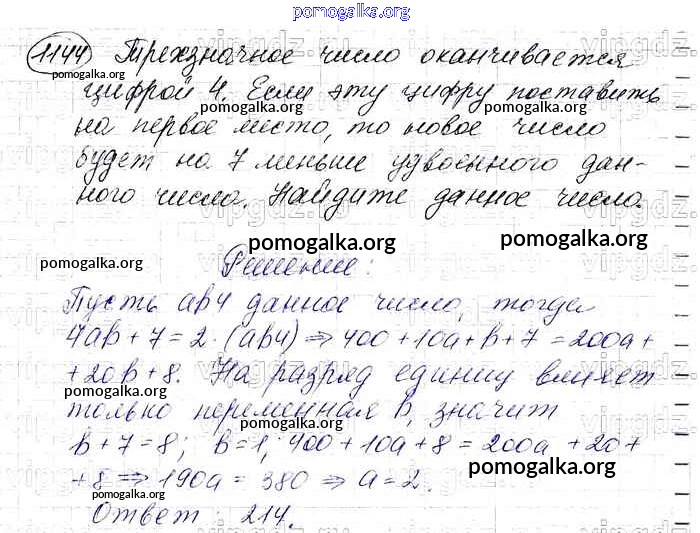 pomogalka.org
1144 Трехзначное число оканчивается
pomogalka.org
цифрой 4. Если эту цифру поставить
на первое место, то новое число
будет на 7 меньше удвоенного дан-
ного числа. Найдите данное число.
pomogalka.org pomogalka.org pomogalka.org
Решение:
Пусть ab4 данное число, тогда
4ab + 7 = 2 · (ab4) ⇒ 400 + 10a + b + 7 = 200a +
+ 20b + 8. На разряд единиц влияет
pomogalka.org
только переменная b, значит
b + 7 = 8; b = 1; 400 + 10a + 8 = 200a + 20 +
+ 8 ⇒ 190a = 380 ⇒ a = 2.
pomogalka.org pomogalka.org
Ответ: 214.
pomogalka.org